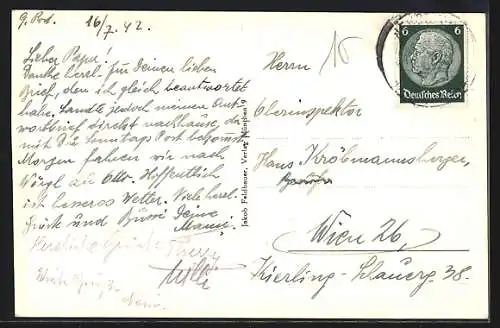 9. Post. 16/7. 42.
Lieber Papa!
Danke herzl. für Deinen lieben
Brief, den ich gleich beantwortet
habe. Sandte jedoch meinen Ant-
wortbrief direkt nachhause, da-
mit Du Sonntags Post bekommst.
Morgen fahren wir nach
Wörgl ab Otto. Hoffentlich
ist besseres Wetter. Viele herzl.
Grüße und Bussi Deine
Mami.
Herzliche Grüße
Viele
Jakob Feldbauer, Verlag, München 9
6 6
Deutsches Reich
Herrn
Oberinspektor
Hans Kröbmannsberger,
Wien 26,
Kierling - Hauerg. 38.